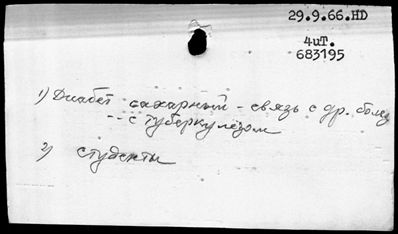 29.9.66.HD
4иT.
683195
1) Диабет сахарный - связь с др. болез
-- с туберкулезом
2) студенты